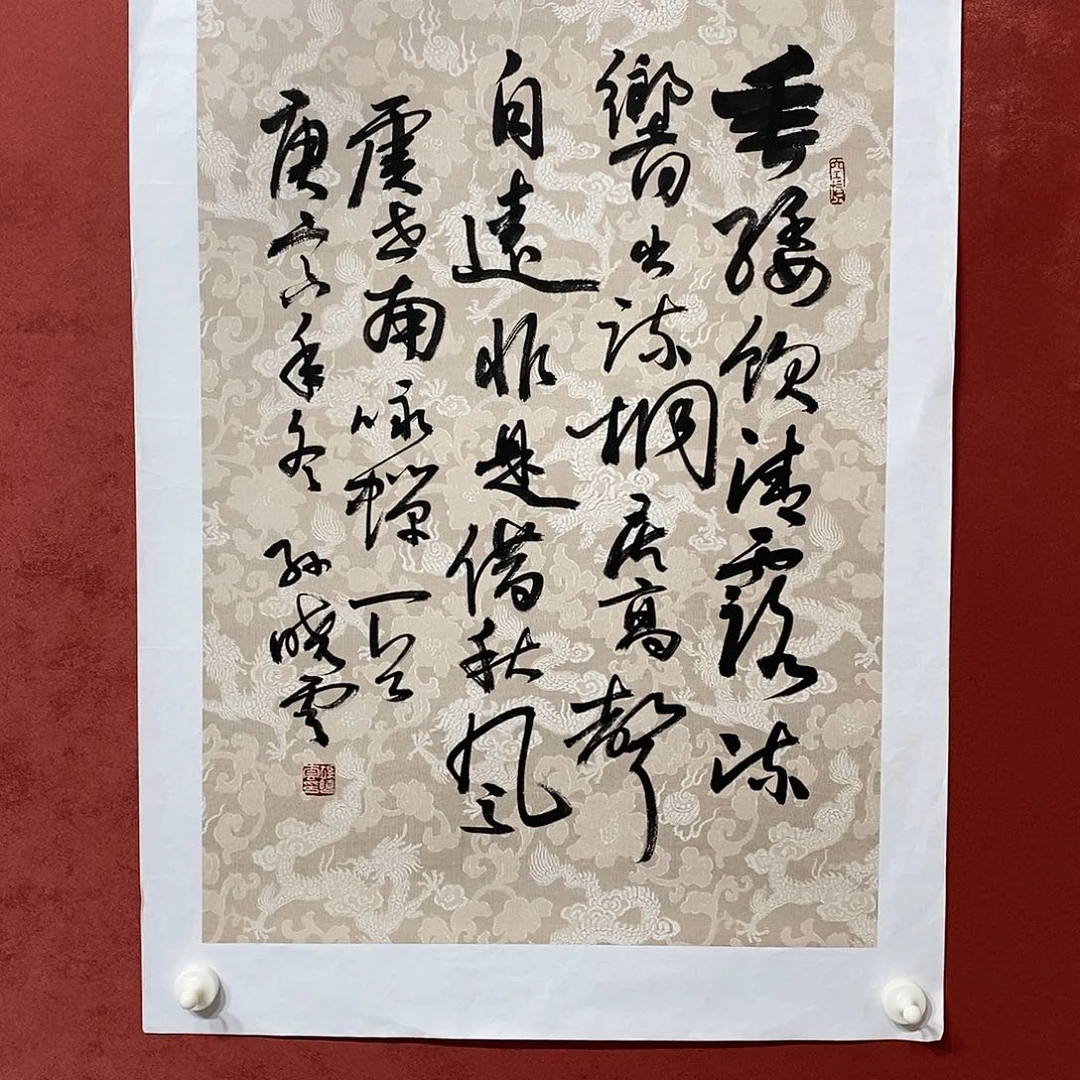 垂緌飲清露流
響出疏桐居高聲
自遠非是借秋風
虞世南咏蟬一首
庚寅年冬 孫曉雲